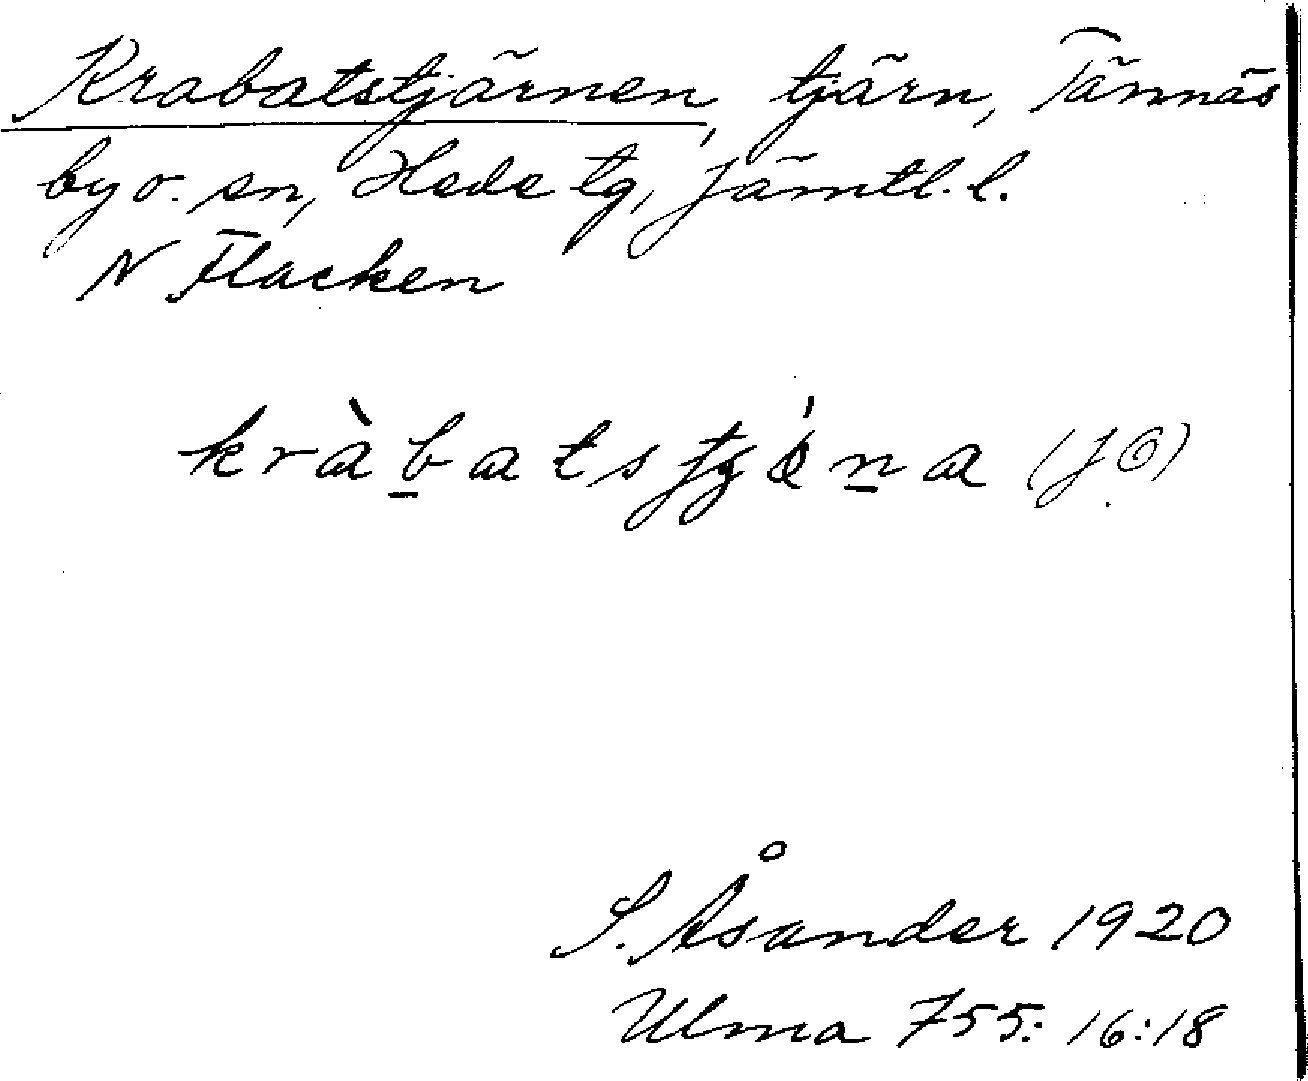 Krabatstjärnen, tjärn, Tännäs
by o. sn, Hede tg, Jämtl. l.
N Flacken
kràbatstjǿna (JÖ)
S. Åsander 1920
Ulma 755: 16:18